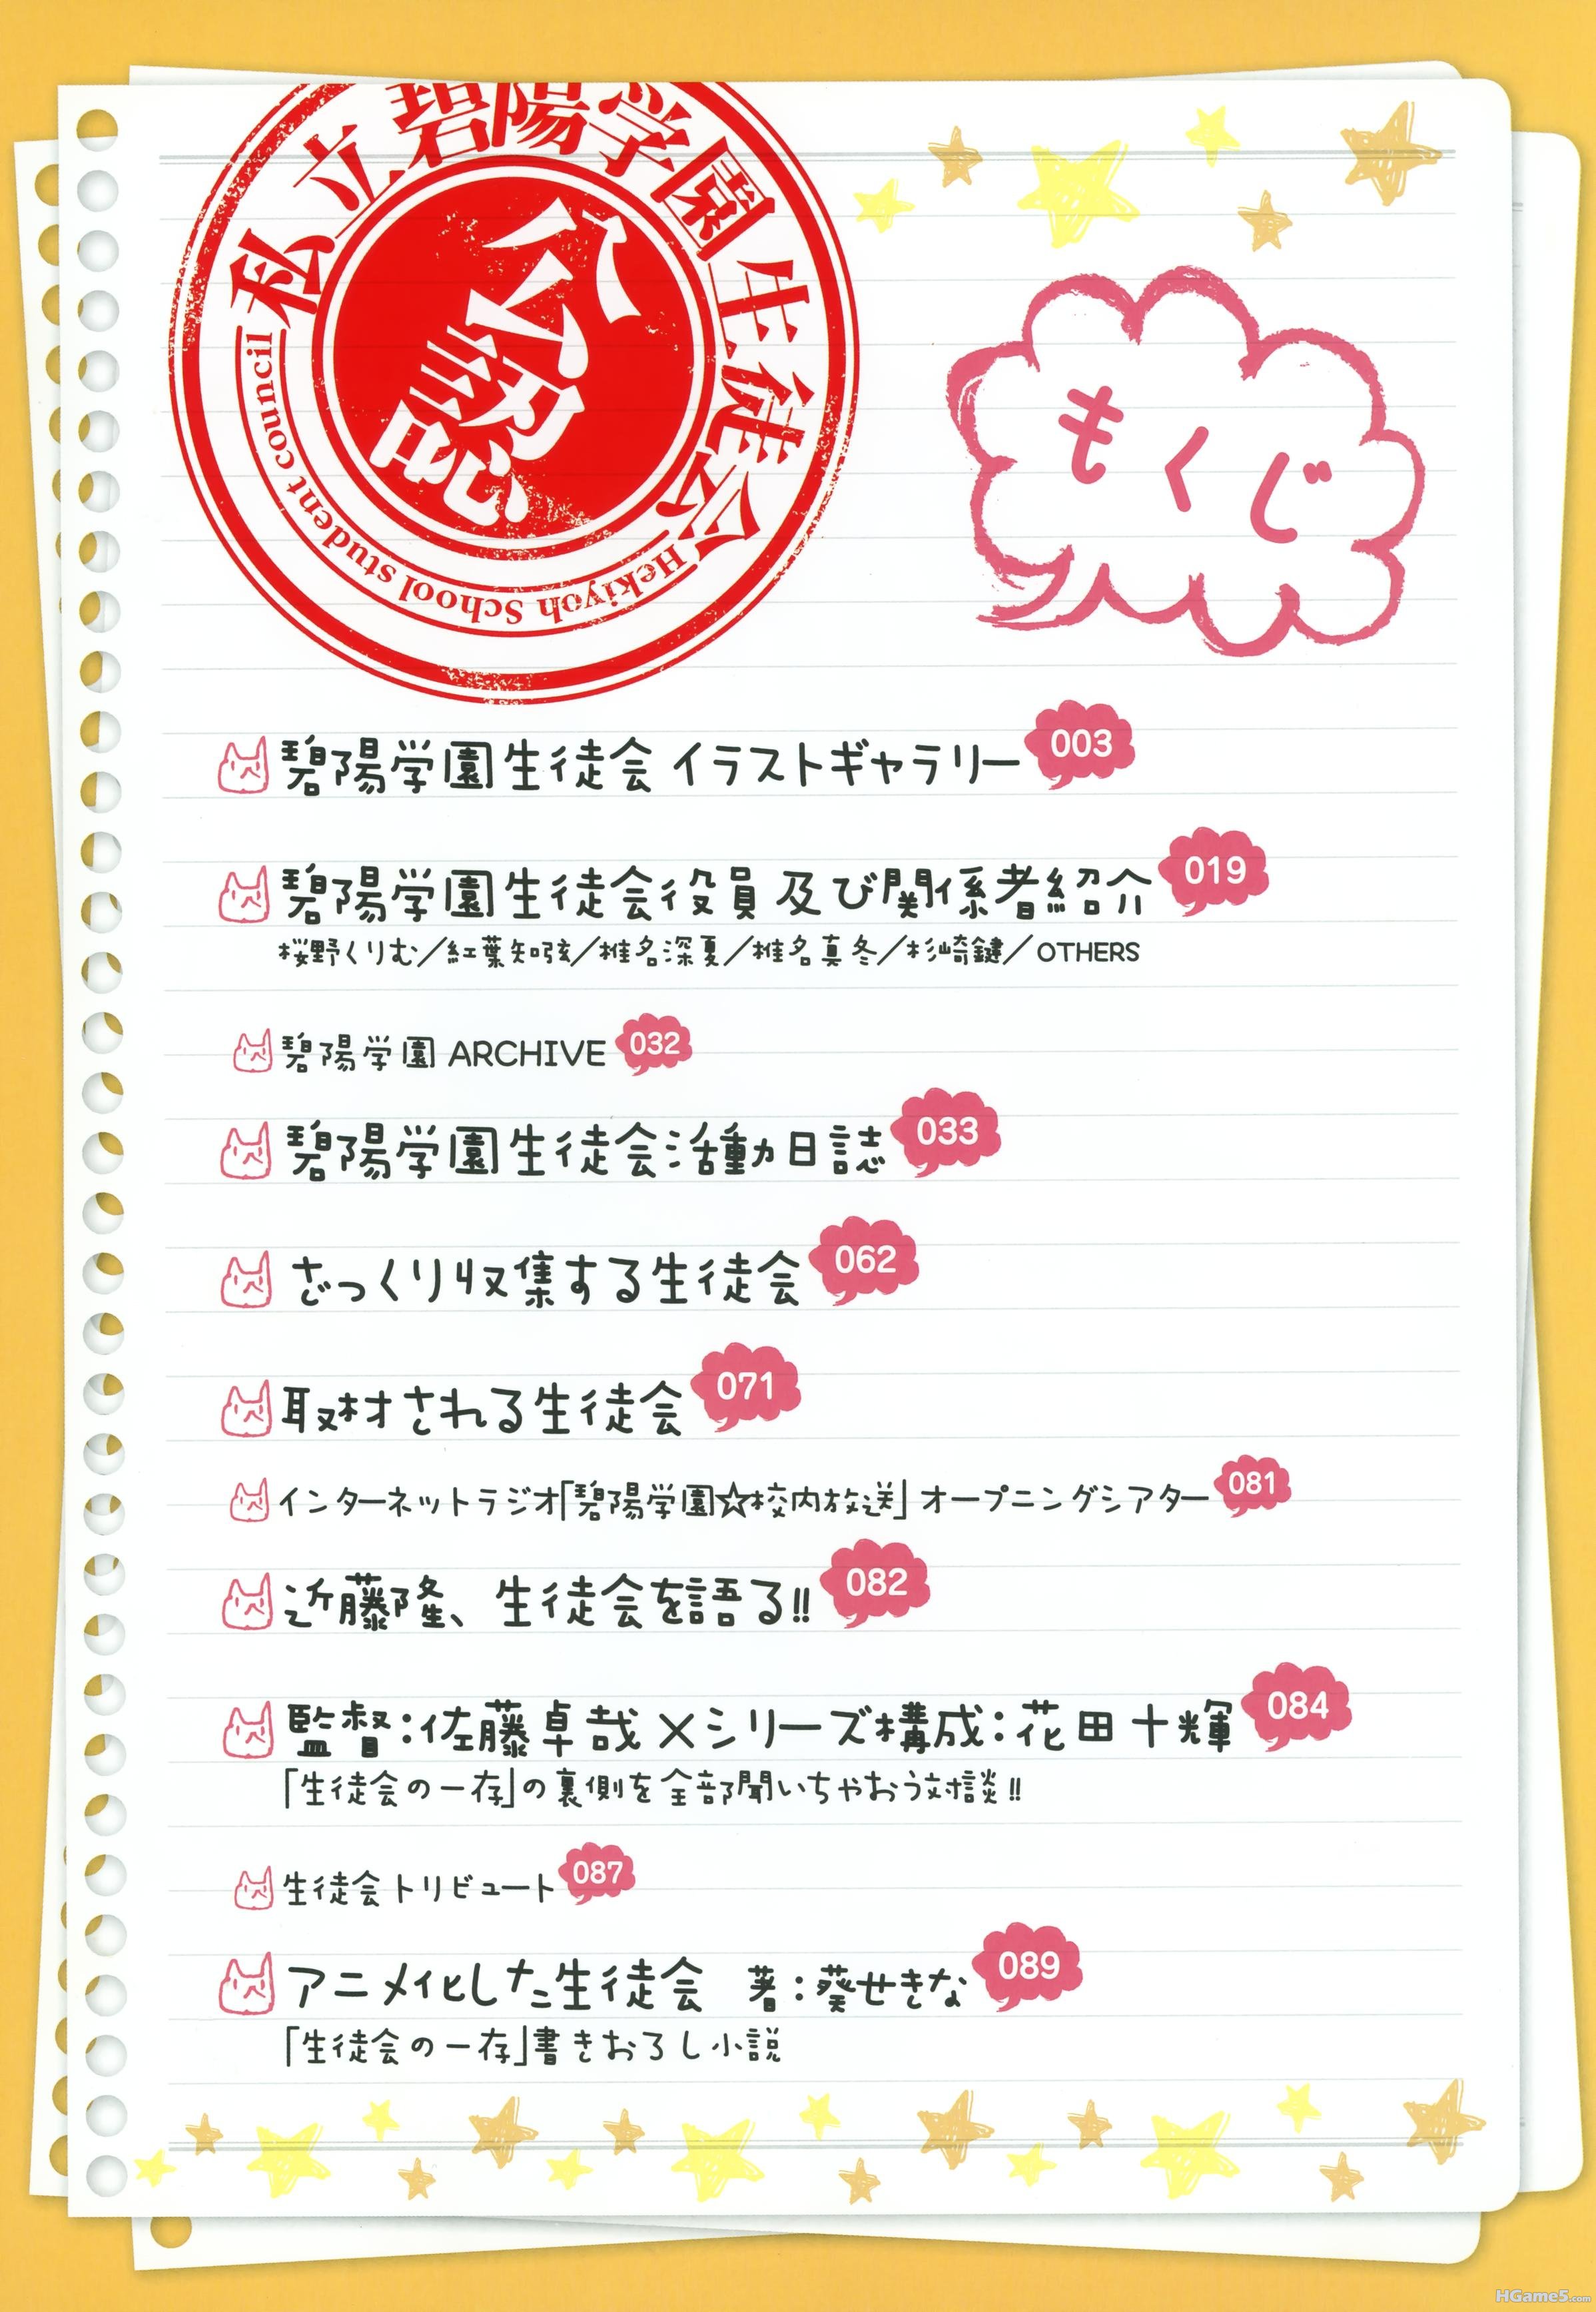 私立碧陽学園生徒会
公認
Hekiyoh School student council
もくじ
碧陽学園生徒会 イラストギャラリー 003
碧陽学園生徒会役員 及び関係者紹介 019
桜野くりむ／紅葉知弦／椎名深夏／椎名真冬／杉崎鍵／OTHERS
碧陽学園 ARCHIVE 032
碧陽学園生徒会活動日誌 033
ざっくり収集する生徒会 062
取材される生徒会 071
インターネットラジオ「碧陽学園☆校内放送」オープニングシアター 081
近藤隆、生徒会を語る!! 082
監督：佐藤卓哉×シリーズ構成：花田十輝 084
「生徒会の一存」の裏側を全部聞いちゃおう対談!!
生徒会トリビュート 087
アニメ化した生徒会 著：葵せきな 089
「生徒会の一存」書きおろし小説
HGame5.com